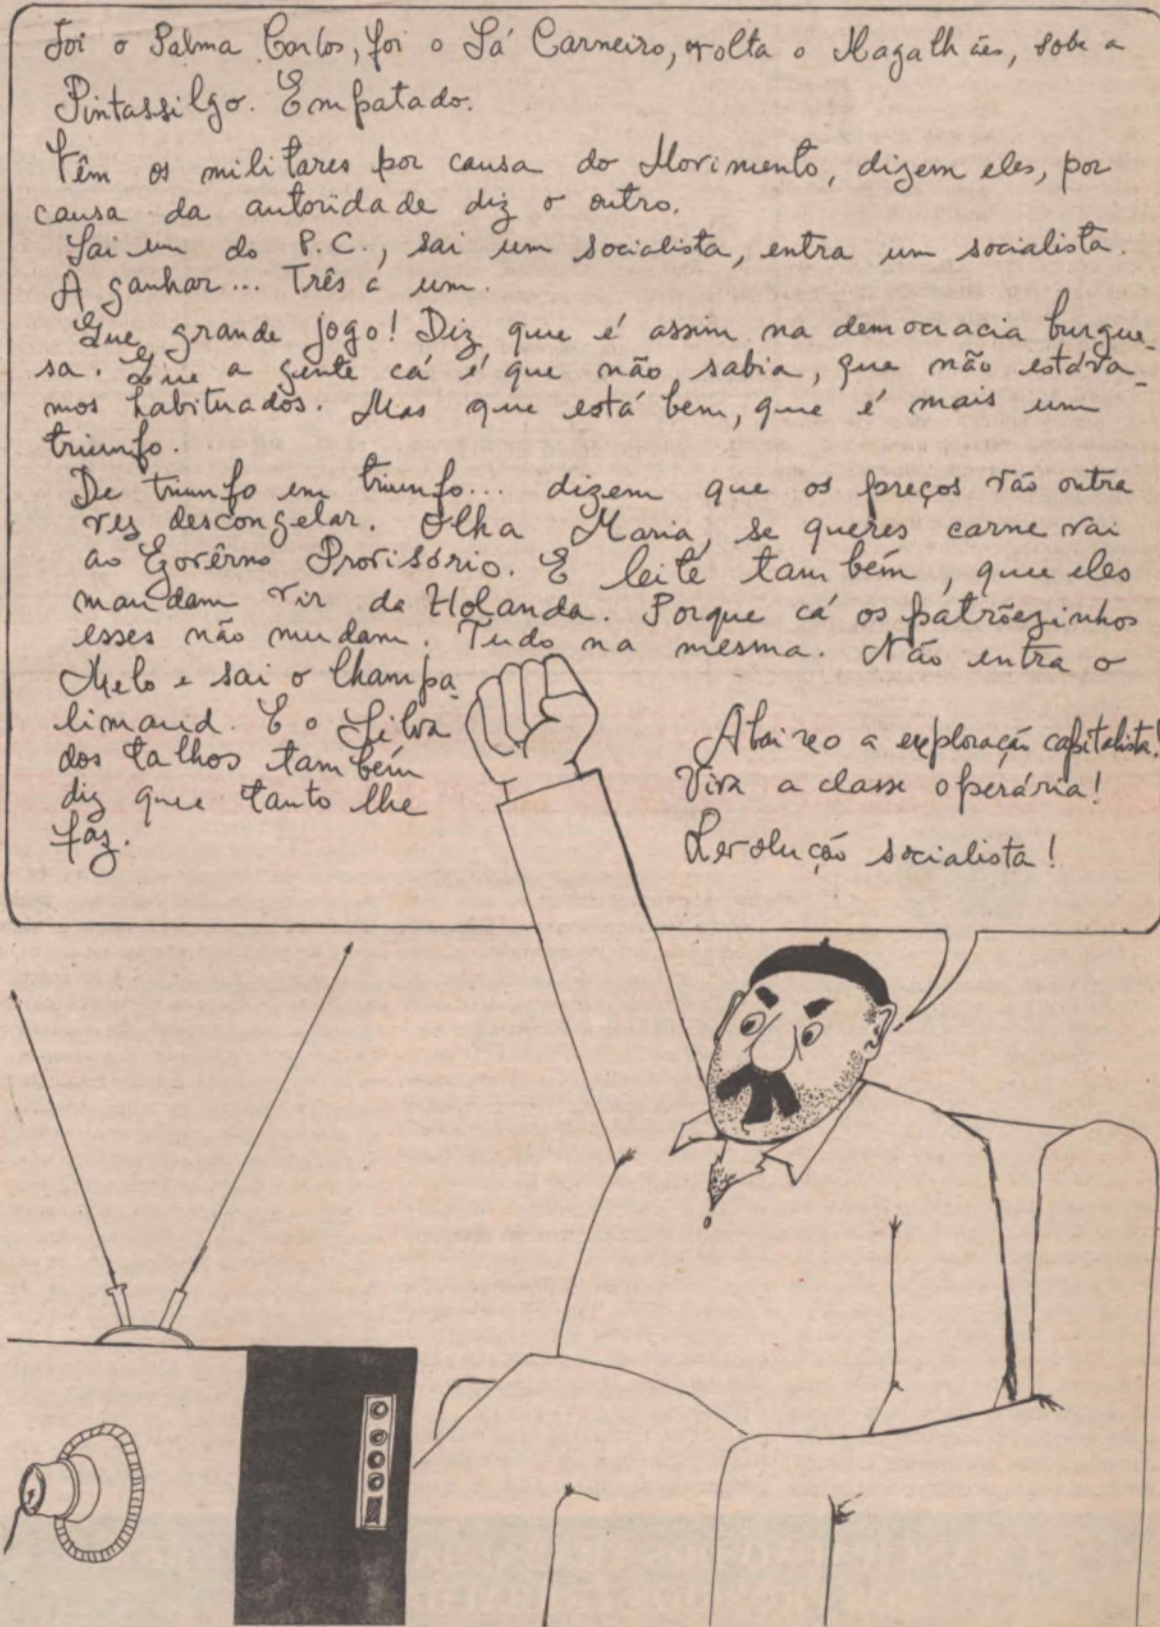 Foi o Palma Carlos, foi o Sá Carneiro, volta o Magalhães, sobe a
Pintassilgo. Empatado.
Têm os militares por causa do Movimento, dizem eles, por
causa da autoridade diz o outro.
Sai um do P.C., sai um socialista, entra um socialista.
A ganhar... Três a um.
Que grande jogo! Diz que é assim na democracia burgue-
sa. Que a gente cá é que não sabia, que não estáva-
mos habituados. Mas que está bem, que é mais um
triunfo.
De triunfo em triunfo... dizem que os preços vão outra
vez descongelar. Olha Maria, se queres carne vai
ao Govêrno Provisório. E leite também, que eles
mandam vir da Holanda. Porque cá os patrõezinhos
esses não mudam. Tudo na mesma. Não entra o
Melo e sai o Champa-
limaud. E o Silva
dos talhos também
diz que tanto lhe
faz.
Abaixo a exploração capitalista!
Viva a classe operária!
Revolução socialista!